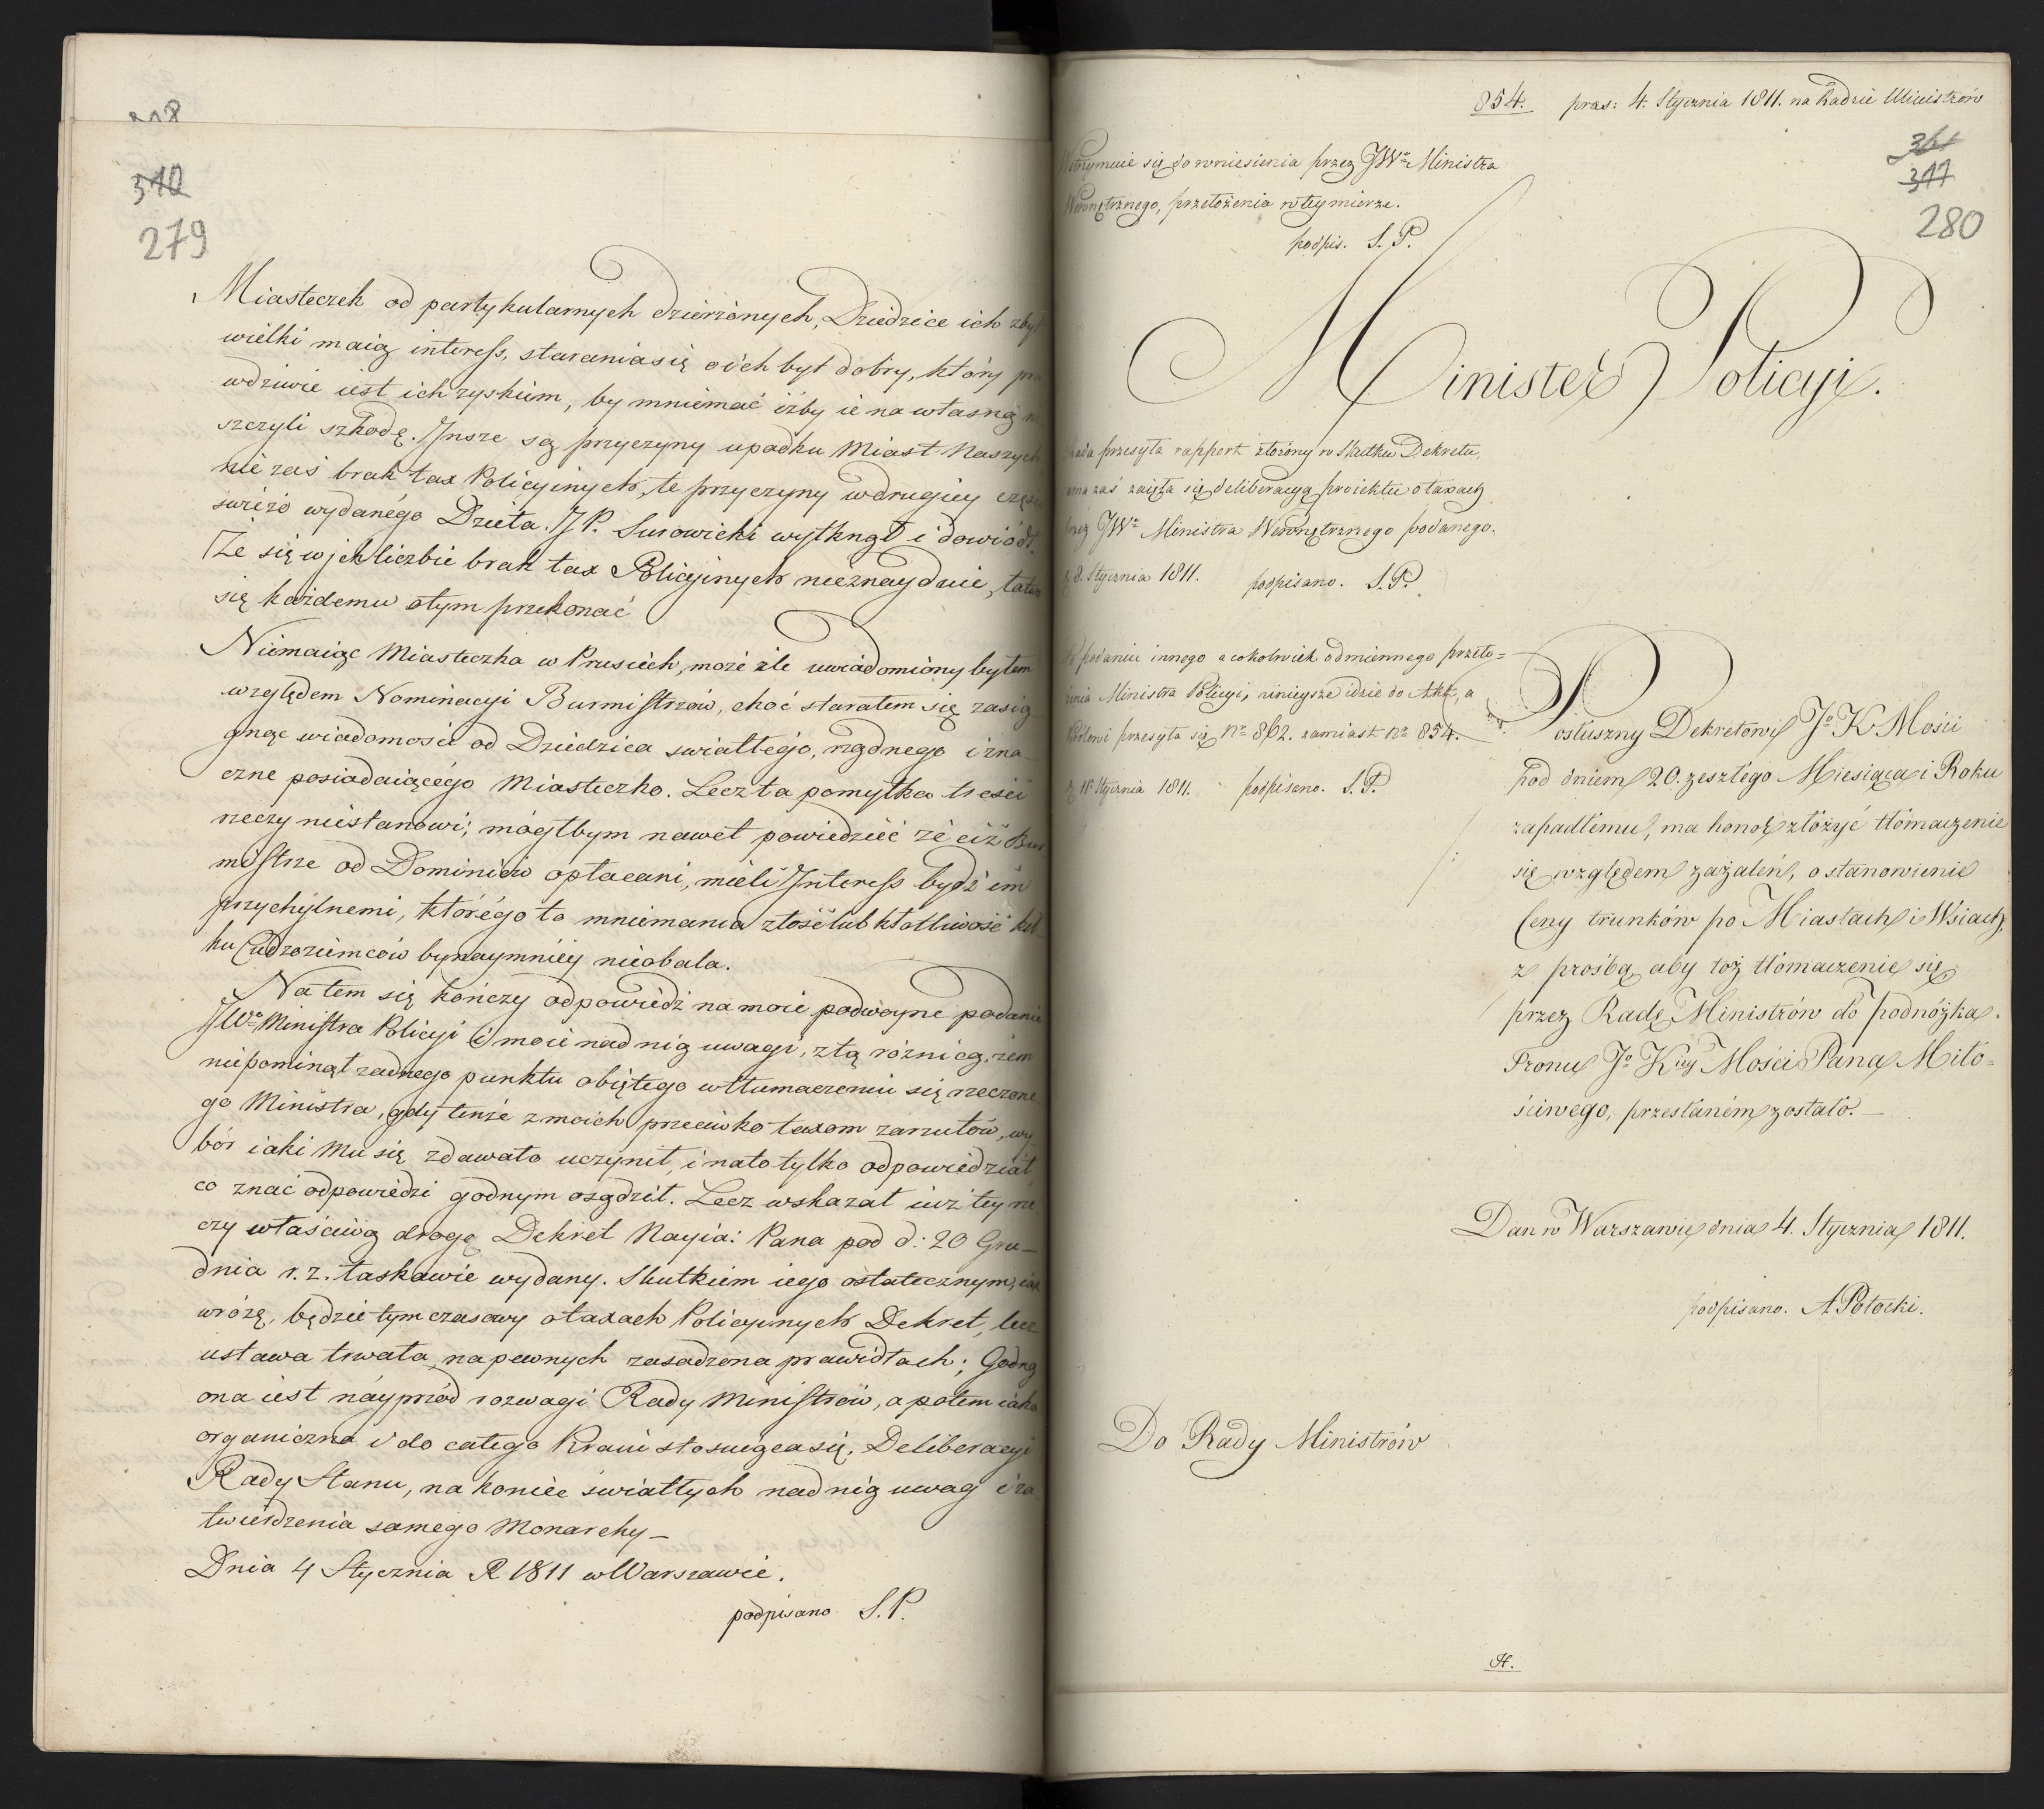 308
340
279
Miasteczek od partykularnych dzierżonych, Dziedzice ich zbyt
wielki maią interess, starania się o ich byt dobry, który pra
wdziwie iest ich zyskiem, by mniemać iżby ie na własną ni
szczyli szkodę. Jnsze są przyczyny upadku Miast Naszych
nie zaś brak tax Policyinych, te przyczyny w drugiey częsci
swiżo wydanégo Dzieła. JP. Surowiecki wytknął i dowiódł.
Że się w jch liczbie brak tax Policyinych nieznayduie, łatwo
się każdemu o tym przekonać
Niemaiąc Miasteczka w Prusiech, może źle uwiadomiony byłem
względem Nominacyi Burmistrzów, choć starałem się zasią-
gnąc wiadomosci od Dziedzica swiałłego, rządnego i zna-
czne posiadaiącégo Miasteczko. Lecz ta pomyłka tresci
rzeczy niestanowi; mógłbym nawet powiedzieć że ciż Bur
mistrze od Dominiów opłacani, mieli Jnteress bydź im
przychylnemi, którégo to mniemania złość lub kłótliwość kil-
ku Cudzoziemców bynaymniéy nieobala.
Na tem się kończy odpowiedź na moie podwoyne podanie
JWo Ministra Policyi i moie nad nią uwagi, z tą różnicą, żem
niepominął żadnego punktu obiętego w tłumaczeniu się rzeczone
go Ministra, gdy tenże z moich przeciwko taxom zarzutów, wy-
bór iaki Mu się zdawało uczynił, i na to tylko odpowiedział,
co znać odpowiedzi godnym osądził. Lecz wskazał iuż tey rze
czy właściwą drogę Dekret Nayia: Pana pod d: 20 Gru-
dnia r. z. łaskawie wydany. Skutkiem iego ostatecznym, iak
wróżę, będzie tymczasowy o taxach Policyinych Dekret, lecz
ustawa trwała, na pewnych zasadzona prawidłach; Godną
ona iest náyprzód rozwagi Rady Ministrów, a potem iako
organiczna i do całego Kraiu stosuiąca się, Deliberacyi
Rady Stanu, na koniec światłych nad nią uwag i za-
twierdzenia samego Monarchy-
Dnia 4 Stycznia R 1811 w Warszawie.
podpisano S.P.
854. pras: 4. Stycznia 1811. na Radzie Ministrów
361
347
280
Wstrzymuie się do wniesienia przez JWo Ministra
Wewnętrznego, przełożenia w tey mierze.
podpis. S.P.
Minister Policyi.
Rada przesyła rapport złożony w Skutku Dekretu,
sama zaś zaięła się deliberacyą proiektu o taxach
przez JWo Ministra Wewnętrznego podanego.
d. 8. Stycznia 1811. podpisano. S.P.
Po podaniu innego a cokolwiek odmiennego przeło=
żenia Ministra Policyi, ninieysze idzie do Akt, a
Królowi przesyła się No 862. zamiast No 854.
d 11 Stycznia 1811. podpisano. S.P.
Posłuszny Dekretowi Jo K Mości
pod dniem 20. zeszłego Miesiąca i Roku
zapadłemu, ma honor złożyć tłómaczenie
się względem zażaleń, o stanowienie
Ceny trunków po Miastach i Wsiach,
z prośbą aby toż tłómaczenie się
przez Radę Ministrów do podnóżka
Tronu Jo Kiey Mości Pana Miło=
ściwego, przesłaném zostało.-
Dan w Warszawie dnia 4. Stycznia 1811.
podpisano. A Potocki.
Do Rady Ministrów
H.